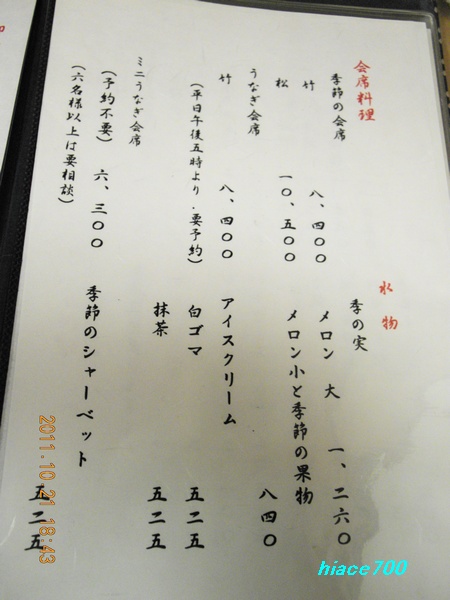 会席料理
季節の会席
竹 八、四〇〇
松 一〇、五〇〇
うなぎ会席
竹 八、四〇〇
(平日午後五時より・要予約)
ミニうなぎ会席
(予約不要) 六、三〇〇
(六名様以上は要相談)
水物
季の実
メロン 大 一、二六〇
メロン小と季節の果物 八四〇
アイスクリーム
白ゴマ 五二五
抹茶 五二五
季節のシャーベット 五二五
2011.10.21 18:43
hiace700